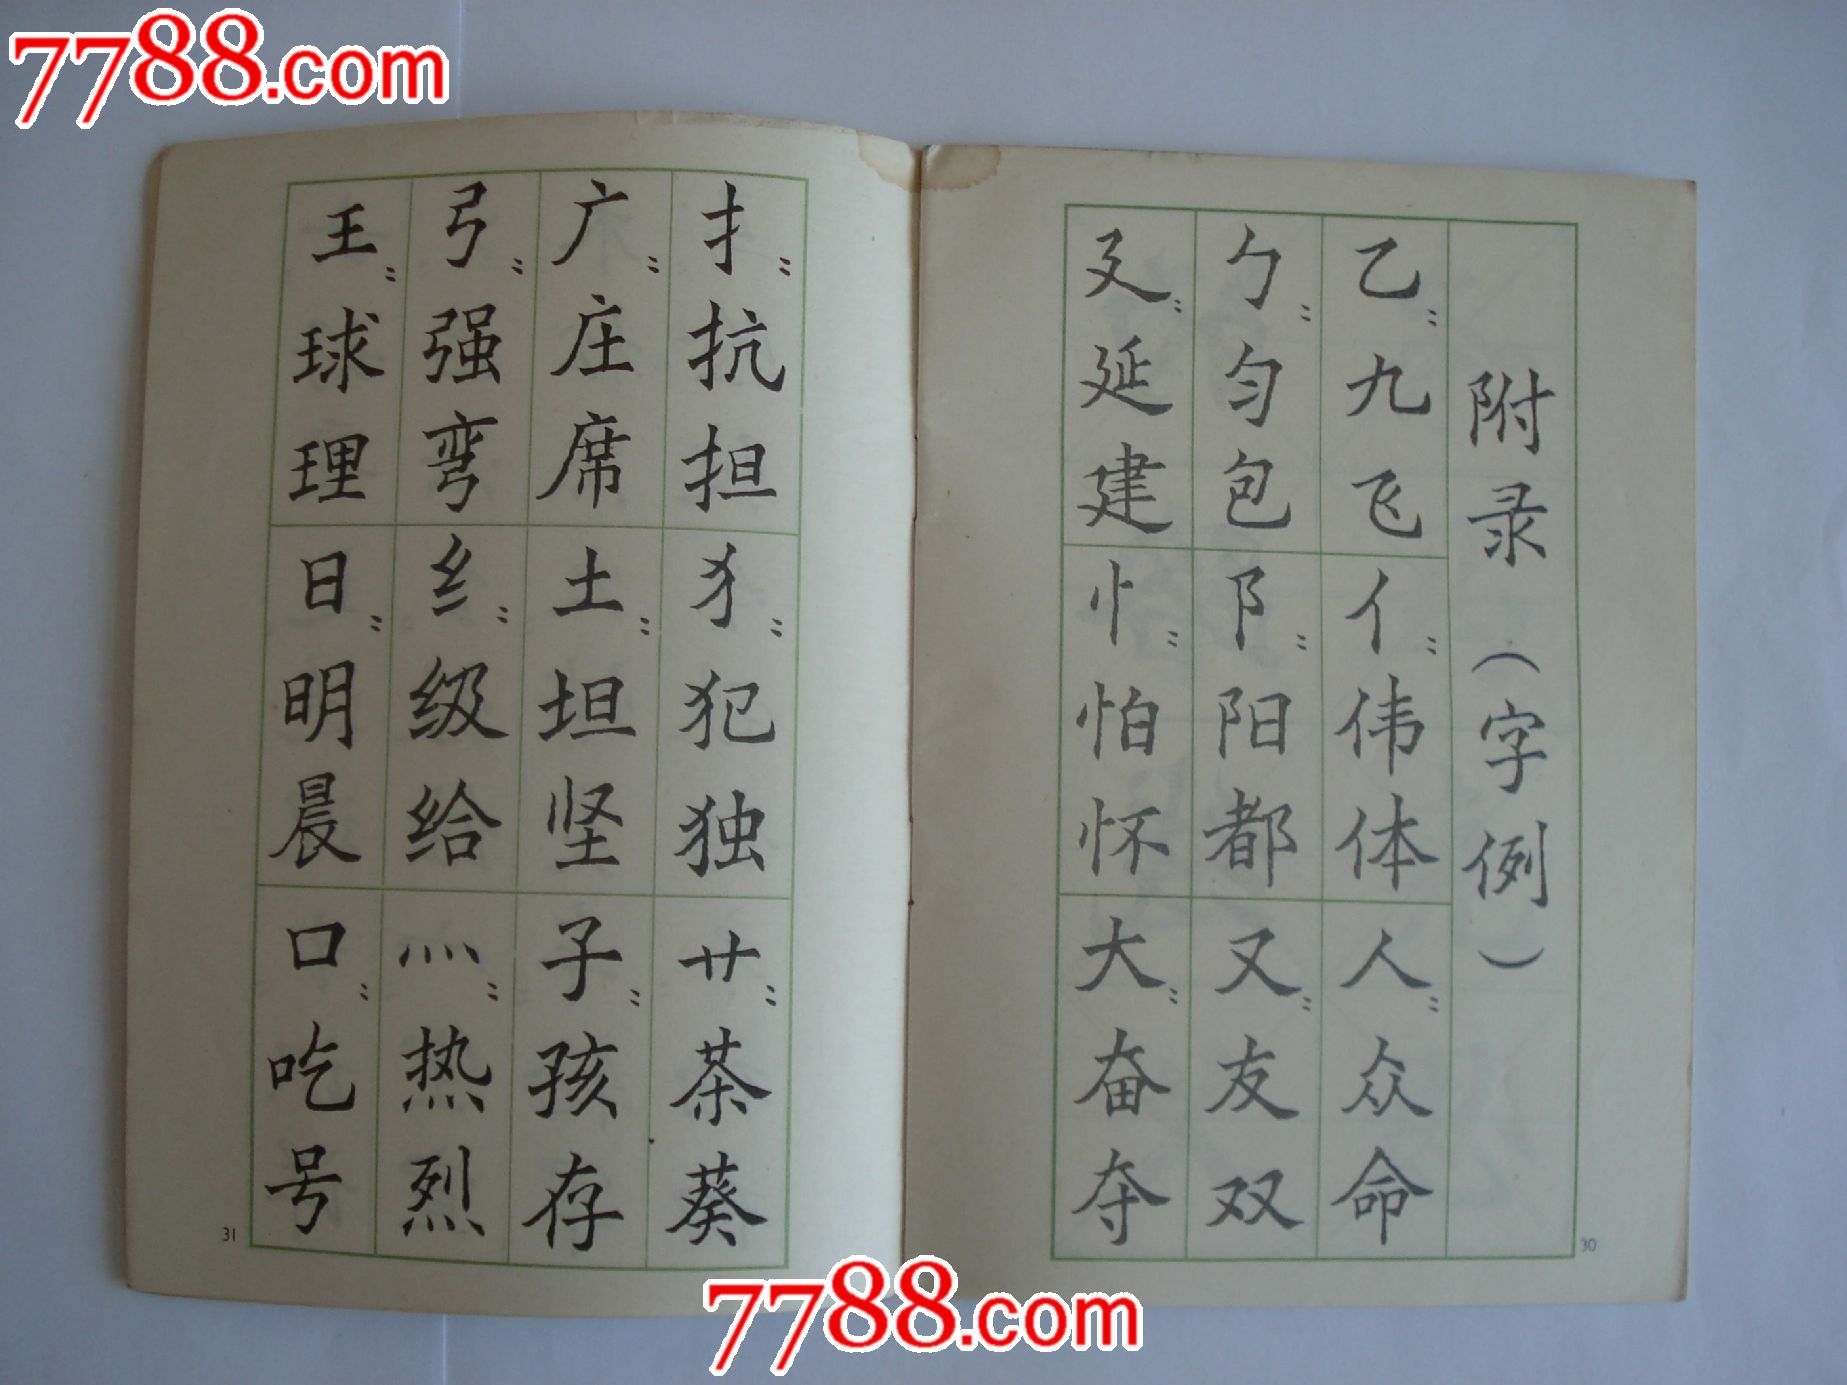 7788.com
附录（字例）
乙：九飞
亻：伟体
人：众命
勹：匀包
阝：阳都
又：友双
廴：延建
忄：怕怀
大：奋夺
30
扌：抗担
犭：犯独
艹：茶葵
广：庄席
土：坦坚
子：孩存
弓：强弯
纟：级给
灬：热烈
王：球理
日：明晨
口：吃号
31
7788.com